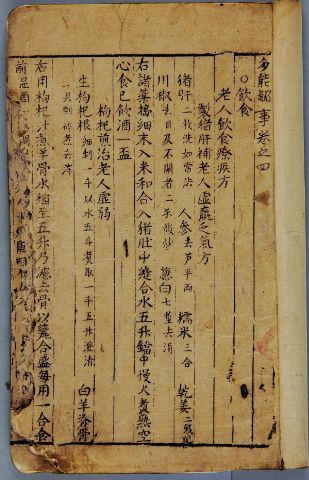 多能鄙事卷之四
○飲食
老人飲食療疾方
製猪肝補老人虛羸乏氣方
猪肝 一枚洗如常法 人參 去芦半両 糯米 三合 乾姜 二錢
川椒 去目及不開者二 微炒 葱白 七莖去須
右諸藥擣細末入米和合入猪肚中縫合水五升鐺中慢火煮熟空
心食已飲酒一盃
枸杞煎治老人虛弱
生枸杞根 細剉一斗以水五斗煮取一斗五升澄清 白羊脊骨
一具剉碎煮去滓
右用枸杞汁煮羊骨水 至五升乃濾去骨以 合盛每用一合食
前温酒